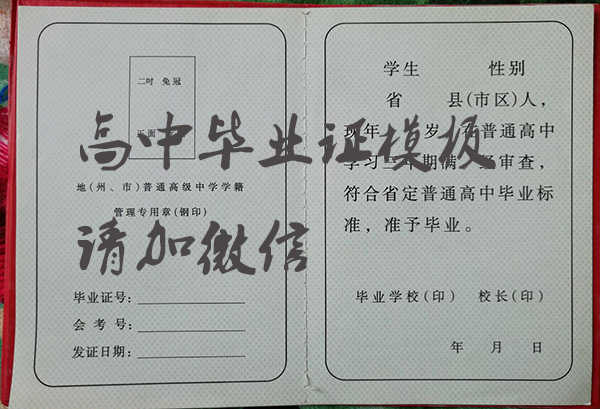 二吋 免冠
正面
地(州、市)普通高级中学学籍
管理专用章(钢印)
毕业证号:
会考号:
发证日期:
学生 性别
省 县(市区)人,
现年 岁,在普通高中
学习三年期满 经审查,
符合省定普通高中毕业标
准,准予毕业。
毕业学校(印) 校长(印)
年 月 日
高中毕业证模板
请加微信